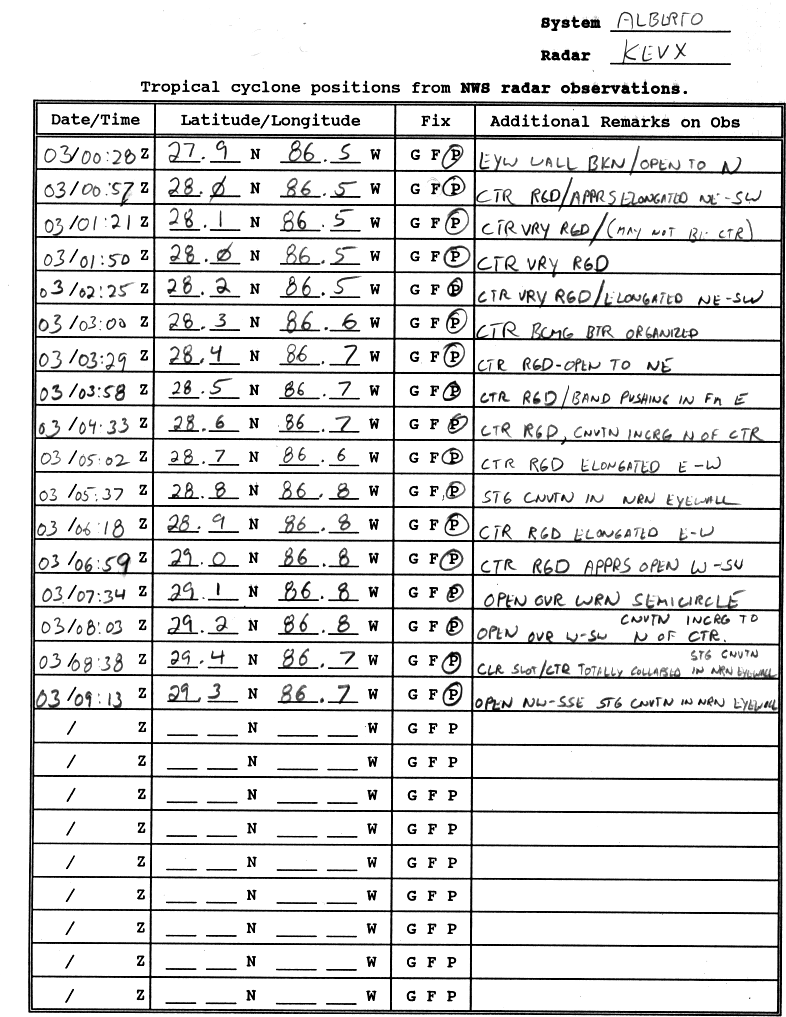 System ALBERTO
Radar KEVX
Tropical cyclone positions from NWS radar observations.
Date/Time Latitude/Longitude Fix Additional Remarks on Obs
03/00:28 Z 27.9 N 86.5 W G F P EYW WALL BKN/OPEN TO N
03/00:57 Z 28.0 N 86.5 W G F P CTR RGD/APPRS ELONGATED NE-SW
03/01:21 Z 28.1 N 86.5 W G F P CTR VRY RGD/(MAY NOT BE CTR)
03/01:50 Z 28.0 N 86.5 W G F P CTR VRY RGD
03/02:25 Z 28.2 N 86.5 W G F P CTR VRY RGD/ELONGATED NE-SW
03/03:00 Z 28.3 N 86.6 W G F P CTR BCMG BTR ORGANIZED
03/03:29 Z 28.4 N 86.7 W G F P CTR RGD-OPEN TO NE
03/03:58 Z 28.5 N 86.7 W G F P CTR RGD/BAND PUSHING IN FM E
03/04:33 Z 28.6 N 86.7 W G F P CTR RGD, CNVTN INCRG N OF CTR
03/05:02 Z 28.7 N 86.6 W G F P CTR RGD ELONGATED E-W
03/05:37 Z 28.8 N 86.8 W G F P STG CNVTN IN NRN EYEWALL
03/06:18 Z 28.9 N 86.8 W G F P CTR RGD ELONGATED E-W
03/06:59 Z 29.0 N 86.8 W G F P CTR RGD APPRS OPEN W-SW
03/07:34 Z 29.1 N 86.8 W G F P OPEN OVR WRN SEMICIRCLE
03/08:03 Z 29.2 N 86.8 W G F P OPEN OVR W-SW CNVTN INCRG TO N OF CTR.
03/08:38 Z 29.4 N 86.7 W G F P CLR SLOT/CTR TOTALLY COLLAPSED STG CNVTN IN NRN EYEWALL
03/09:13 Z 29.3 N 86.7 W G F P OPEN NW-SSE STG CNVTN IN NRN EYEWALL
/ Z __ __ N __ __ W G F P
/ Z __ __ N __ __ W G F P
/ Z __ __ N __ __ W G F P
/ Z __ __ N __ __ W G F P
/ Z __ __ N __ __ W G F P
/ Z __ __ N __ __ W G F P
/ Z __ __ N __ __ W G F P
/ Z __ __ N __ __ W G F P
/ Z __ __ N __ __ W G F P